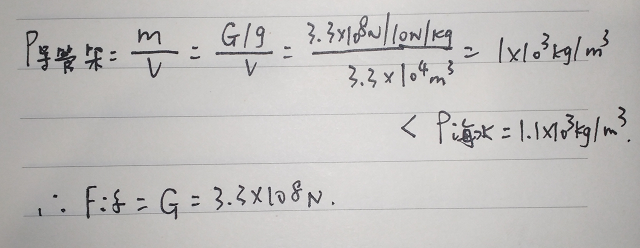 ρ导管架 = m/V = G/g/V = 3.3×10⁸N/10N/kg / 3.3×10⁴m³ = 1×10³kg/m³
< ρ海水 = 1.1×10³kg/m³.
∴ F浮 = G = 3.3×10⁸N.